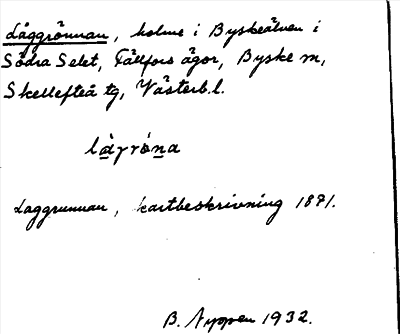 Låggrönnan, holme i Byskeälven i
Södra Selet, Fällfors ägor, Byske sn,
Skellefteå tg, Västerb. l.
Laggrunnan, kartbeskrivning 1871.
B. Nyppen 1932.